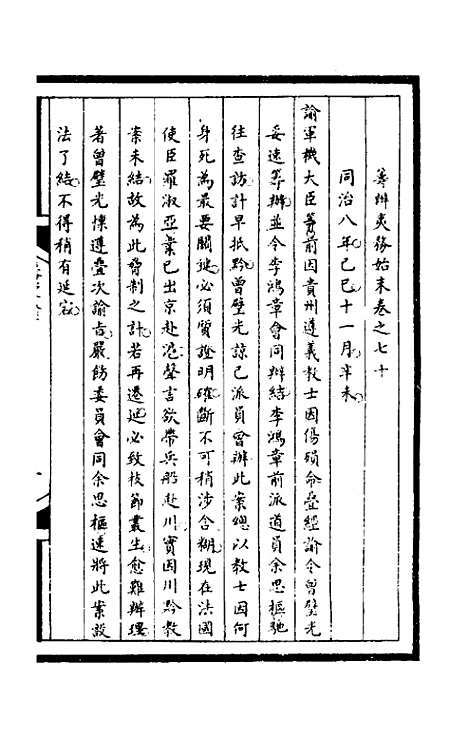 籌辦夷務始末卷之七十
同治八年己巳十一月辛未
諭軍機大臣等前因貴州遵義教士因傷殞命叠經諭令曾璧光
妥速籌辦並令李鴻章會同辦結李鴻章前派道員余思樞馳
往查訪計早抵黔曾璧光諒已派員會辦此案總以教士因何
身死為最要關鍵必須質證明確斷不可稍涉含糊現在法國
使臣羅淑亞業已出京赴滬聲言欲帶兵船赴川實因川黔教
案未結故為此脅制之計若再遷延必致枝節叢生愈難辦理
著曾璧光懍遵叠次諭旨嚴飭委員會同余思樞速將此案設
法了結不得稍有延宕